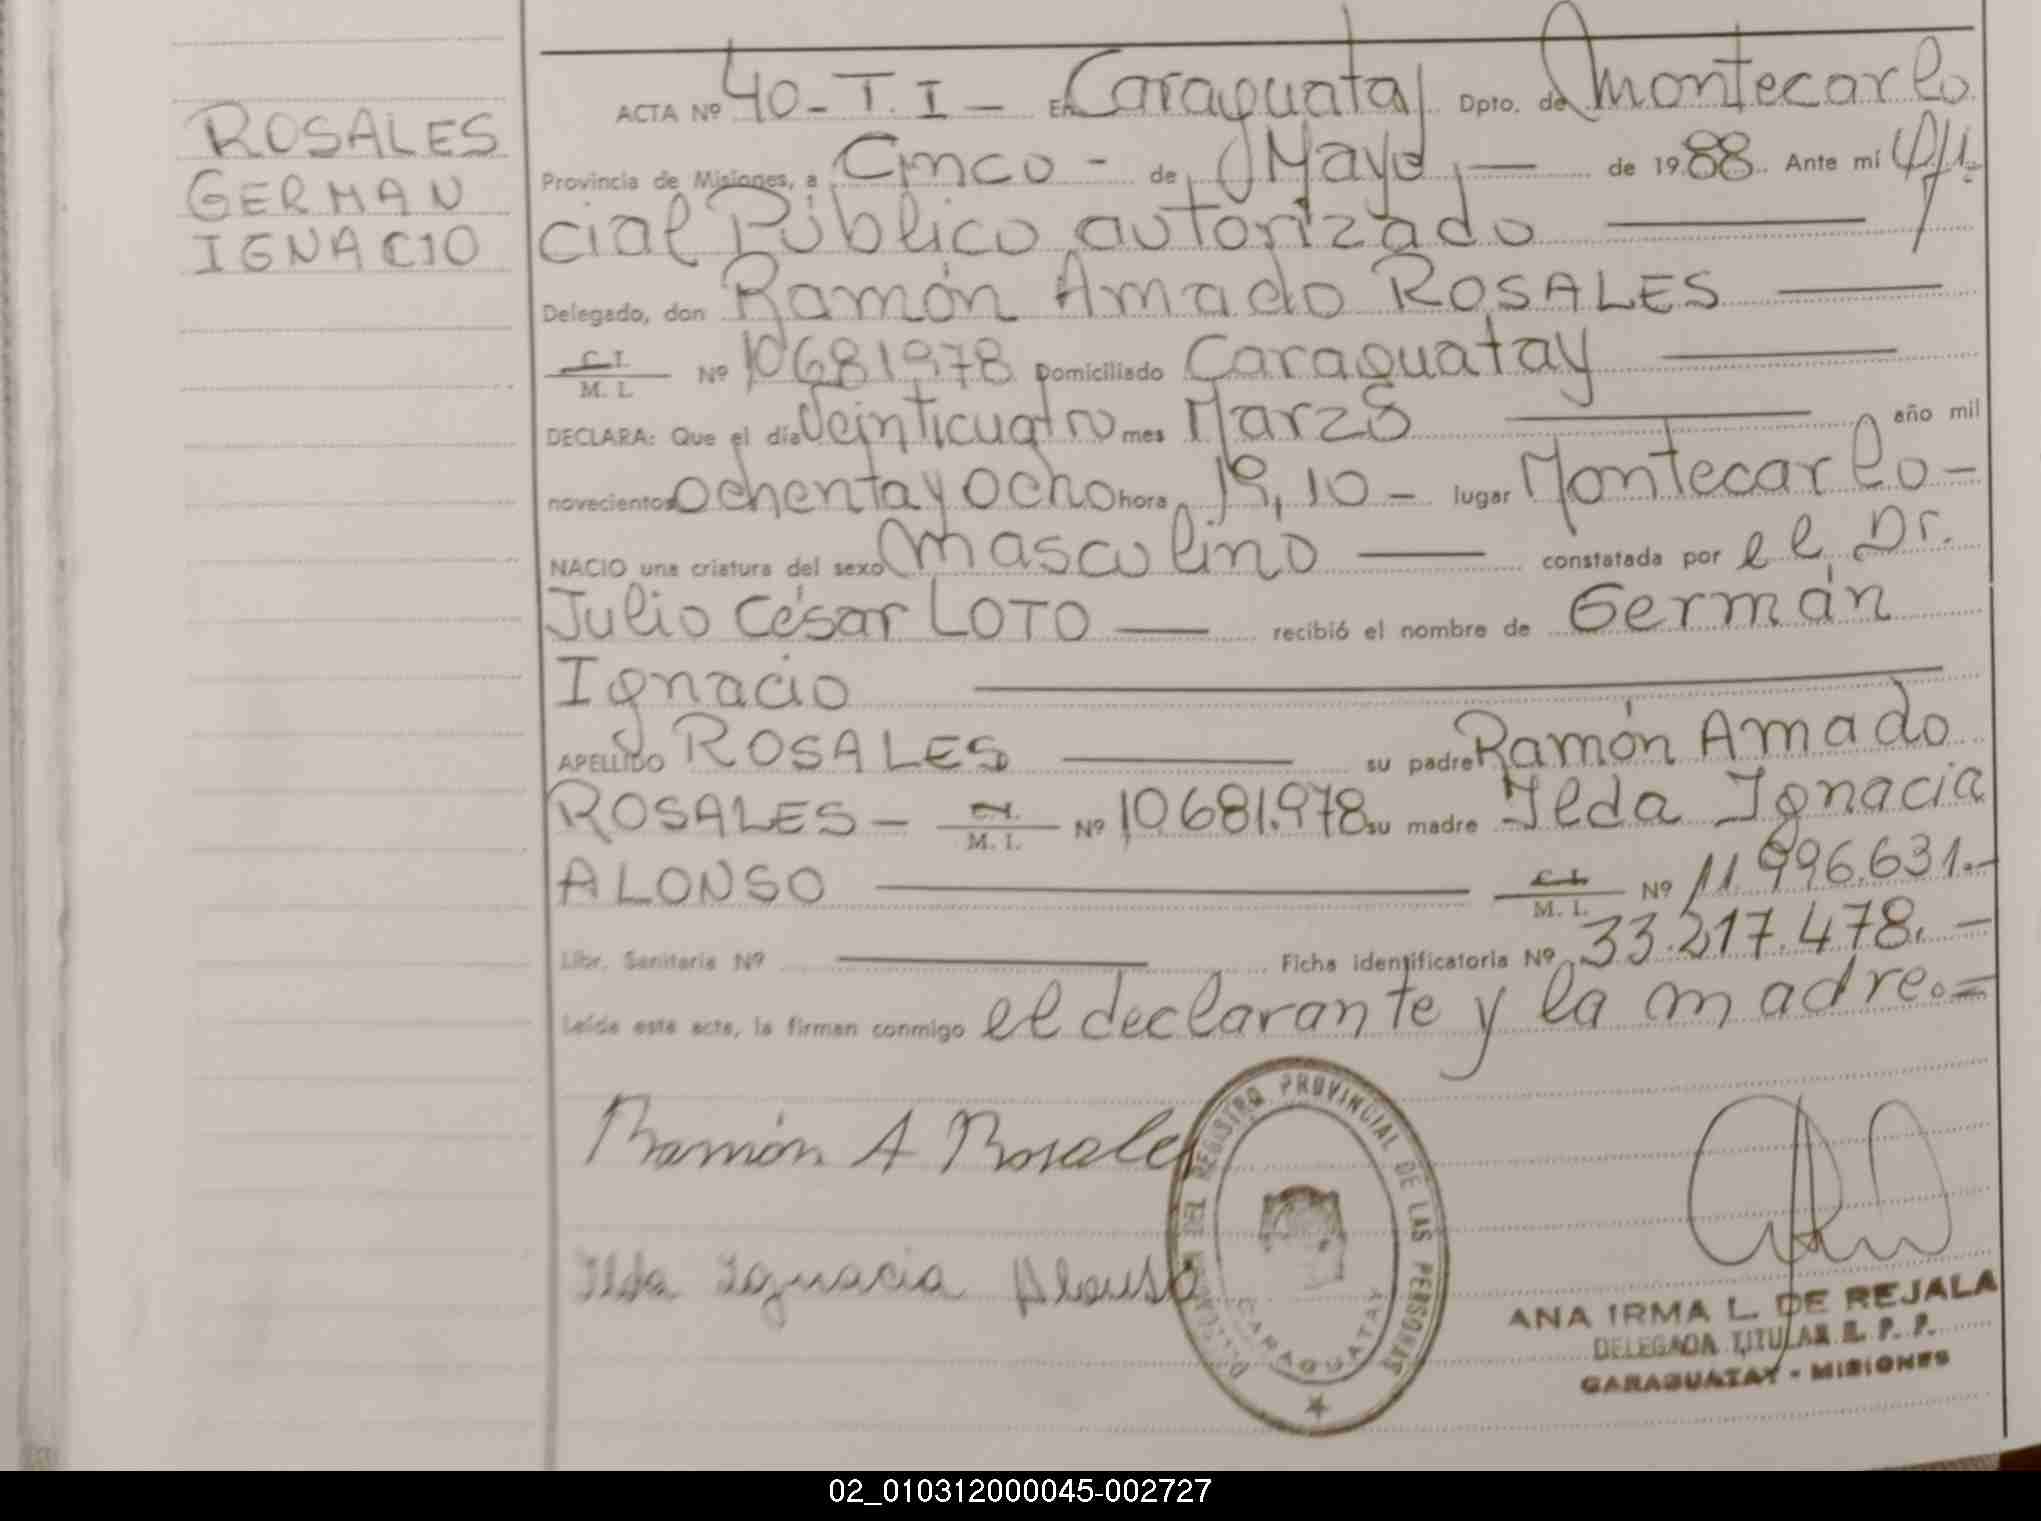 ROSALES
GERMAN
IGNACIO
ACTA Nº 40-T.I- En Caraguatay Dpto. de Montecarlo
Provincia de Misiones, a Cinco - de Mayo de 1988. Ante mí Ofi-
cial Público autorizado
Delegado, don Ramón Amado ROSALES
C.I. / M. I. Nº 10681978 Domiciliado Caraguatay
DECLARA: Que el día Veinticuatro mes Marzo año mil
novecientos ochenta y ocho hora 19,10 - lugar Montecarlo-
NACIO una criatura del sexo masculino constatada por el Dr.
Julio César LOTO recibió el nombre de Germán
Ignacio
APELLIDO ROSALES su padre Ramón Amado
ROSALES - C.I. / M. I. Nº 10.681.978 su madre Ilda Ignacia
ALONSO C.I. / M. I. Nº 11.996.631.-
Libr. Sanitaria Nº Ficha identificatoria Nº 33.217.478.-
Leída este acta, la firman conmigo el declarante y la madre.=
Ramón A Rosales
Ilda Ignacia Alonso
DEL REGISTRO PROVINCIAL DE LAS PERSONAS
CARAGUATAY
ANA IRMA L. DE REJALA
DELEGADA TITULAR R. P. P.
CARAGUATAY - MISIONES
02_010312000045-002727